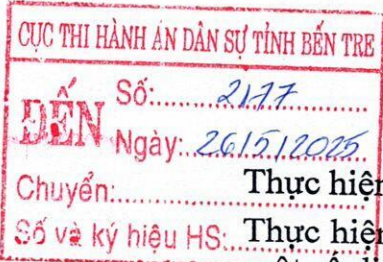 CỤC THI HÀNH ÁN DÂN SỰ TỈNH BẾN TRE
ĐẾN
Số:.......2177.......
Ngày:..26/5/2025
Chuyển:............
Số và ký hiệu HS:....
Thực hiện
Thực hiện